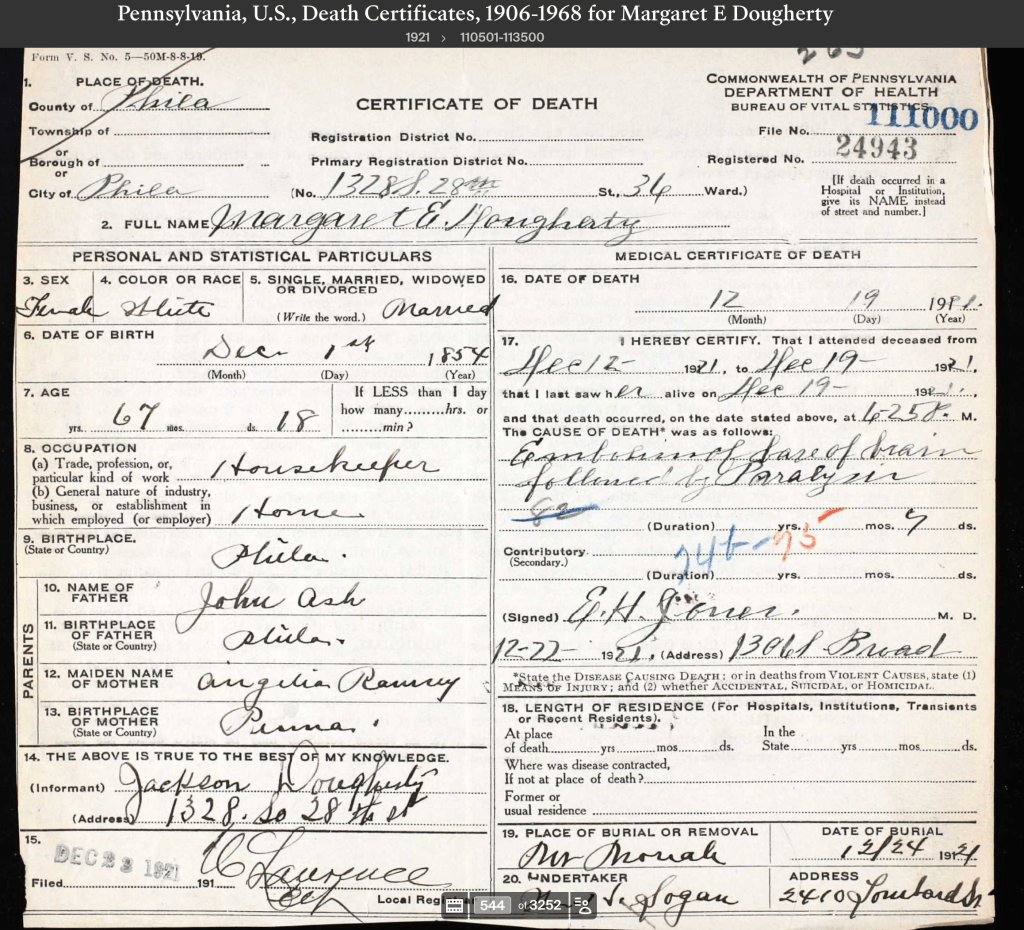 Pennsylvania, U.S., Death Certificates, 1906-1968 for Margaret E Dougherty
1921 > 110501-113500
Form V. S. No. 5—50M-8-8-19.
1. PLACE OF DEATH.
County of Phila
Township of
or
Borough of
or
City of Phila
CERTIFICATE OF DEATH
Registration District No.
Primary Registration District No.
(No. 1328 S. 28th St., 36 Ward.)
COMMONWEALTH OF PENNSYLVANIA
DEPARTMENT OF HEALTH
BUREAU OF VITAL STATISTICS
File No. 111000
Registered No. 24943
[If death occurred in a
Hospital or Institution,
give its NAME instead
of street and number.]
2. FULL NAME Margaret E. Dougherty
PERSONAL AND STATISTICAL PARTICULARS
3. SEX
Female
4. COLOR OR RACE
White
5. SINGLE, MARRIED, WIDOWED
OR DIVORCED
(Write the word.) Married
6. DATE OF BIRTH
Dec 1st 1854
(Month) (Day) (Year)
7. AGE
67 yrs. mos. 18 ds.
If LESS than 1 day
how many........hrs. or
.........min?
8. OCCUPATION
(a) Trade, profession, or,
particular kind of work Housekeeper
(b) General nature of industry,
business, or establishment in
which employed (or employer) Home
9. BIRTHPLACE.
(State or Country)
Phila.
PARENTS
10. NAME OF
FATHER
John Ash
11. BIRTHPLACE
OF FATHER
(State or Country)
Phila.
12. MAIDEN NAME
OF MOTHER
Angelia Ramsey
13. BIRTHPLACE
OF MOTHER
(State or Country)
Penna.
14. THE ABOVE IS TRUE TO THE BEST OF MY KNOWLEDGE.
(Informant) Jackson Dougherty
(Address) 1328. So 28th st
15.
DEC 23 1921
Filed 191
C Lawrence
Local Reg
MEDICAL CERTIFICATE OF DEATH
16. DATE OF DEATH
12 19 1921.
(Month) (Day) (Year)
17. I HEREBY CERTIFY. That I attended deceased from
Dec 12- 1921, to Dec 19- 1921,
that I last saw her alive on Dec 19- 192
and that death occurred, on the date stated above, at M.
The CAUSE OF DEATH* was as follows:
Embolism of base of brain
followed by Paralysis
82
(Duration) yrs. mos. 7 ds.
Contributory
(Secondary.)
74b-75
(Duration) yrs. mos. ds.
(Signed) E. H. Jones. M. D.
12-22- 1921, (Address) Broad
*State the DISEASE CAUSING DEATH; or in deaths from VIOLENT CAUSES, state (1)
MEANS OF INJURY; and (2) whether ACCIDENTAL, SUICIDAL, or HOMICIDAL.
18. LENGTH OF RESIDENCE (For Hospitals, Institutions, Transients
or Recent Residents).
At place
of death yrs mos ds.
In the
State yrs mos ds.
Where was disease contracted,
If not at place of death?
Former or
usual residence
19. PLACE OF BURIAL OR REMOVAL
Mt Moriah
DATE OF BURIAL
12/24 1921
20. UNDERTAKER
S. Logan
ADDRESS
2410 Lombard St
544 of 3252